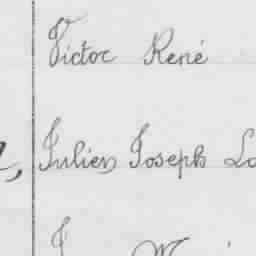 Victor René
Julien Joseph